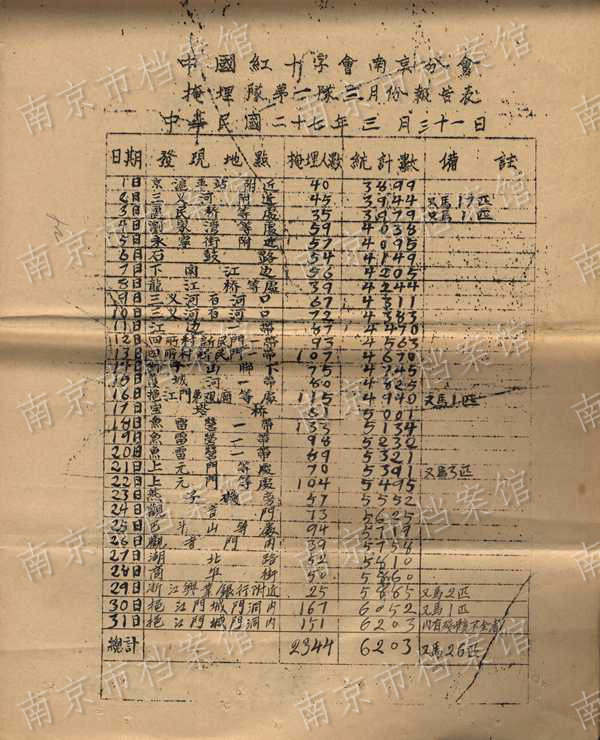 中國紅十字會南京分會
掩埋隊第一隊三月份報告表
中華民國二十七年三月三十一日
日期 發現地點 掩埋人數 統計數 備註
1日 京滬車站附近 40 3899
2日 三汊河附近 45 3944 又馬17匹
3日 民橋等處 35 3979 又馬1匹
4日 劉家灣等處 59 4038
5日 永寧街附近 57 4095
6日 石鼓路 54 4149
7日 下關江邊 56 4205
8日 龍江橋等處 39 4244
9日 三汊河石河口 67 4311
10日 三汊河口 72 4383
11日 江邊一帶 87 4470
12日 四所村新民門一帶 93 4563
13日 四所村新民門一帶 107 4670
14日 75 4745
15日 80 4825
16日 挹江門等處 115 4940 又馬1匹
17日 寶塔橋 61 5001
18日 魚雷營一帶 133 5134
19日 魚雷營一帶 98 5232
20日 魚雷營一帶 89 5321
21日 上元門等處 70 5391 又馬3匹
22日 上元門等處 104 5495
23日 燕子磯旁 57 5552
24日 觀音門 73 5625
25日 斗山等處 94 5719
26日 觀音門內 39 5758
27日 湖北路 52 5810
28日 商平街 50 5860
29日 浙江興業銀行附近 25 5885 又馬2匹
30日 挹江門城門洞內 167 6052 又馬1匹
31日 挹江門城門洞內 151 6203 內有殘體不全者
總計 2344 6203 又馬26匹
南京市档案馆